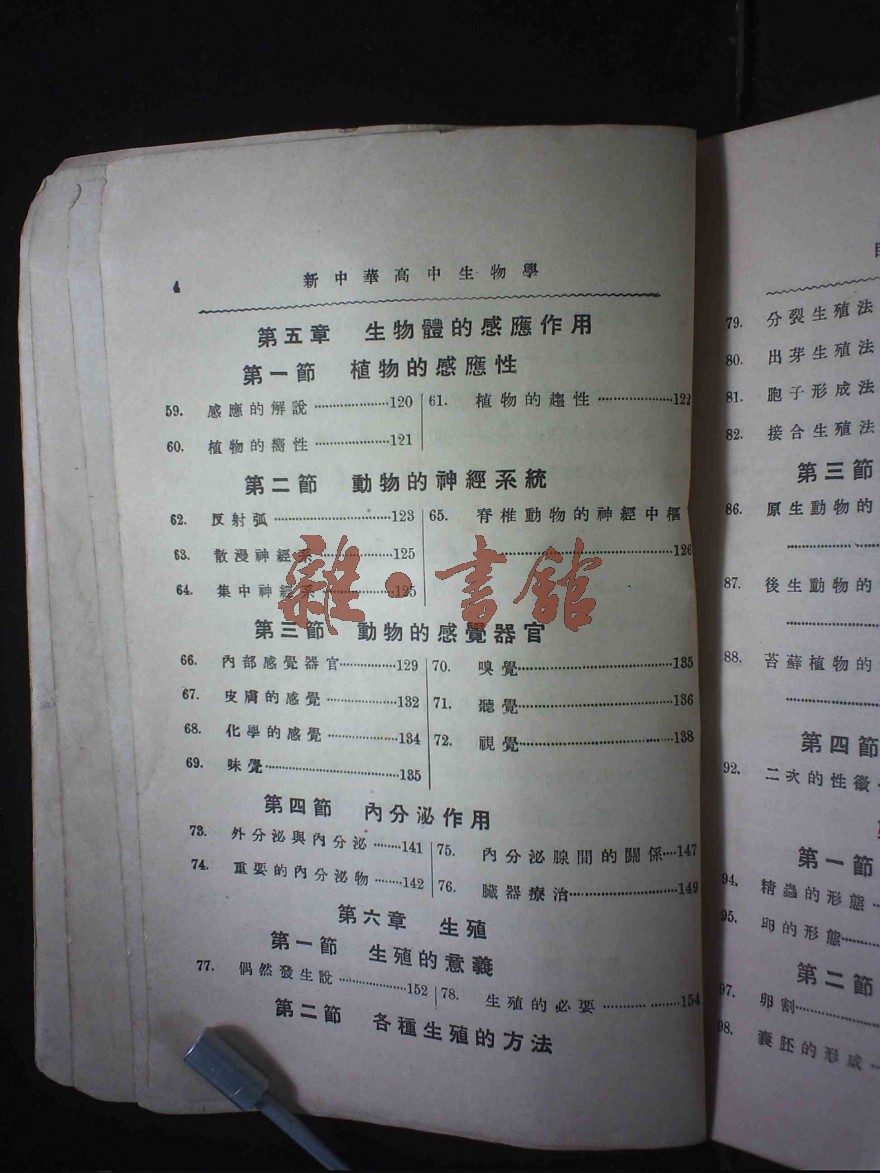 4 新中華高中生物學
第五章 生物體的感應作用
第一節 植物的感應性
59. 感應的解說…………………120
60. 植物的嚮性…………………121
61. 植物的趨性…………………122
第二節 動物的神經系統
62. 反射弧…………………123
63. 散漫神經系…………………125
64. 集中神經系…………………125
65. 脊椎動物的神經中樞
…………………126
第三節 動物的感覺器官
66. 內部感覺器官……………129
67. 皮膚的感覺…………………132
68. 化學的感覺…………………134
69. 味覺…………………135
70. 嗅覺…………………135
71. 聽覺…………………136
72. 視覺…………………138
第四節 內分泌作用
73. 外分泌與內分泌………141
74. 重要的內分泌物………142
75. 內分泌腺間的關係…147
76. 臟器療治…………………149
第六章 生殖
第一節 生殖的意義
77. 偶然發生說…………………152
78. 生殖的必要…………………154
第二節 各種生殖的方法
雜·書館
79. 分裂生殖法
80. 出芽生殖法
81. 胞子形成法
82. 接合生殖法
第三節
86. 原生動物的
…………………
87. 後生動物的
…………………
88. 苔蘚植物的
…………………
第四節
92. 二次的性徵
第一節
94. 精蟲的形態
95. 卵的形態
第二節
97. 卵割
98. 囊胚的形成